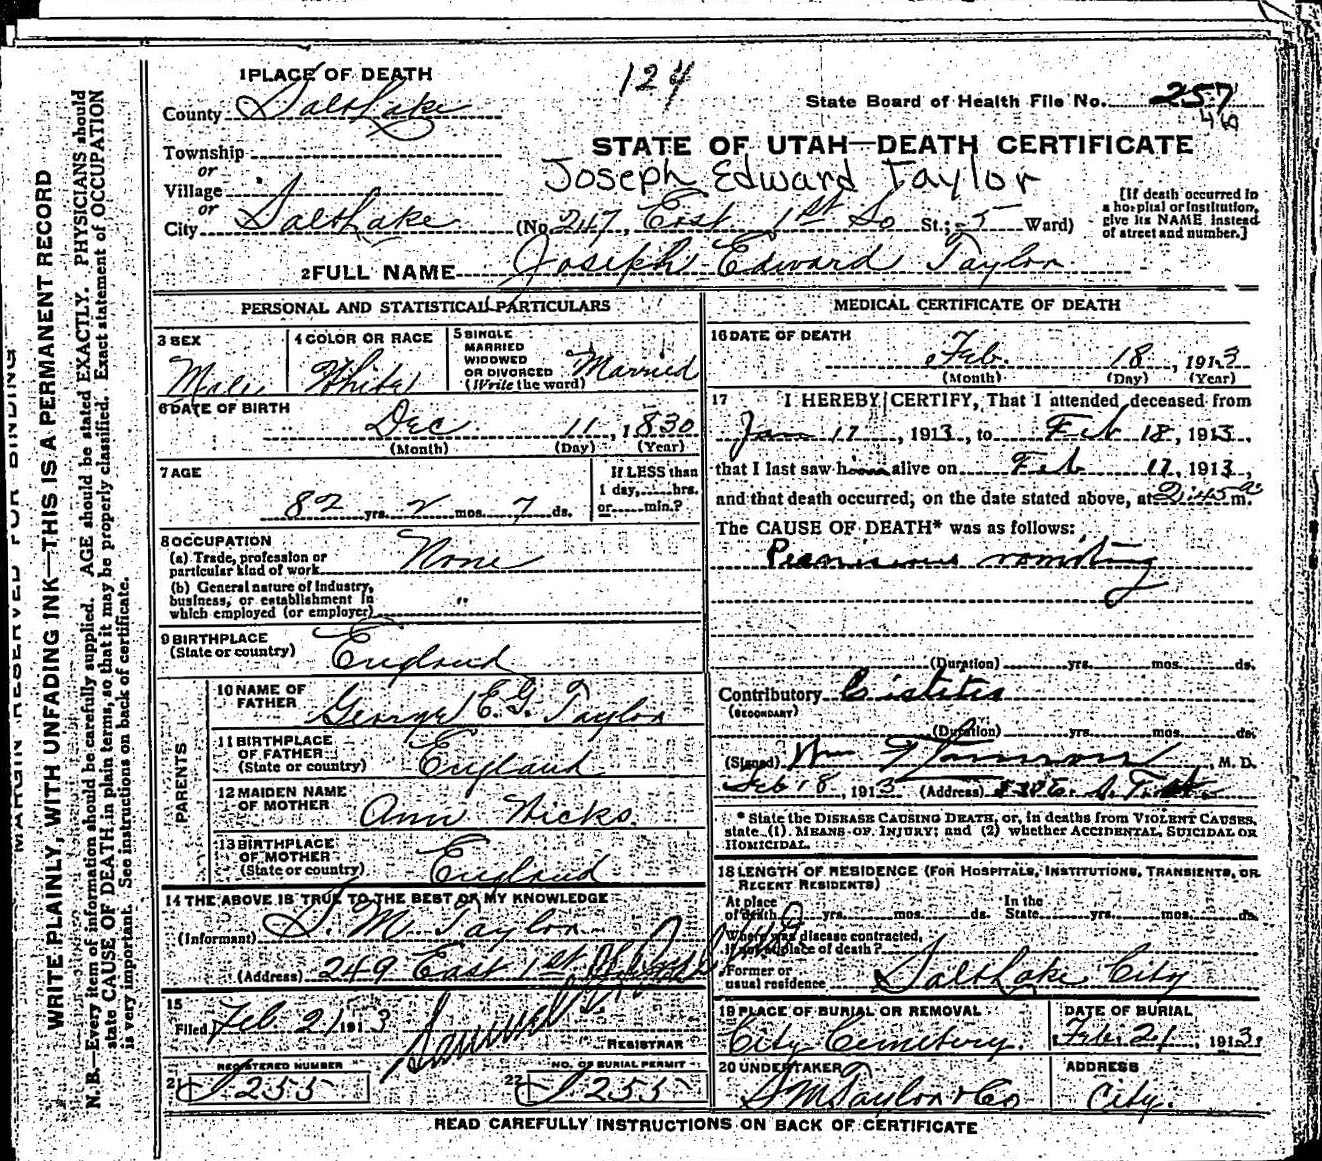 MARGIN RESERVED FOR BINDING
WRITE PLAINLY, WITH UNFADING INK—THIS IS A PERMANENT RECORD
N. B.—Every item of information should be carefully supplied. AGE should be stated EXACTLY. PHYSICIANS should
state CAUSE OF DEATH in plain terms, so that it may be properly classified. Exact statement of OCCUPATION
is very important. See instructions on back of certificate.
1 PLACE OF DEATH
124
State Board of Health File No. 257
46
County Salt Lake
STATE OF UTAH—DEATH CERTIFICATE
Township
or
Joseph Edward Taylor
Village
or
[If death occurred in a hospital or institution, give its NAME instead of street and number.]
City Salt Lake (No. 217, East 1st So St.; 5 Ward)
2 FULL NAME Joseph Edward Taylor
PERSONAL AND STATISTICAL PARTICULARS
3 SEX
Male
4 COLOR OR RACE
White
5 SINGLE
MARRIED
WIDOWED
OR DIVORCED
(Write the word)
Married
6 DATE OF BIRTH
Dec 11, 1830
(Month) (Day) (Year)
7 AGE
82 yrs. 2 mos. 7 ds.
If LESS than
1 day, hrs.
or min.?
8 OCCUPATION
(a) Trade, profession or
particular kind of work None
(b) General nature of industry,
business, or establishment in
which employed (or employer) "
9 BIRTHPLACE
(State or country) England
PARENTS
10 NAME OF
FATHER George E. G. Taylor
11 BIRTHPLACE
OF FATHER
(State or country) England
12 MAIDEN NAME
OF MOTHER Ann Hicks
13 BIRTHPLACE
OF MOTHER
(State or country) England
14 THE ABOVE IS TRUE TO THE BEST OF MY KNOWLEDGE
(Informant) S. M. Taylor
(Address) 249 East 1st
15
Filed Feb 21 1913 Samuel
REGISTRAR
REGISTERED NUMBER
21 255
NO. OF BURIAL PERMIT
22 255
MEDICAL CERTIFICATE OF DEATH
16 DATE OF DEATH
Feb. 18, 1913
(Month) (Day) (Year)
17 I HEREBY CERTIFY, That I attended deceased from
Jan 17, 1913, to Feb 18, 1913,
that I last saw him alive on Feb 17, 1913,
and that death occurred, on the date stated above, at 2:45 a m.
The CAUSE OF DEATH* was as follows:
vomiting
(Duration) yrs. mos. ds.
Contributory Cistetes
(SECONDARY)
(Duration) yrs. mos. ds.
(Signed) Wm, M. D.
Feb 18, 1913 (Address)
* State the DISEASE CAUSING DEATH, or, in deaths from VIOLENT CAUSES,
state (1) MEANS OF INJURY; and (2) whether ACCIDENTAL, SUICIDAL OR
HOMICIDAL.
18 LENGTH OF RESIDENCE (FOR HOSPITALS, INSTITUTIONS, TRANSIENTS, OR
RECENT RESIDENTS)
At place
of death yrs. mos. ds. In the
State yrs. mos. ds.
Where was disease contracted,
if not at place of death?
Former or
usual residence Salt Lake City
19 PLACE OF BURIAL OR REMOVAL
City Cemetery.
DATE OF BURIAL
Feb. 21, 1913.
20 UNDERTAKER
S M Taylor & Co
ADDRESS
City.
READ CAREFULLY INSTRUCTIONS ON BACK OF CERTIFICATE